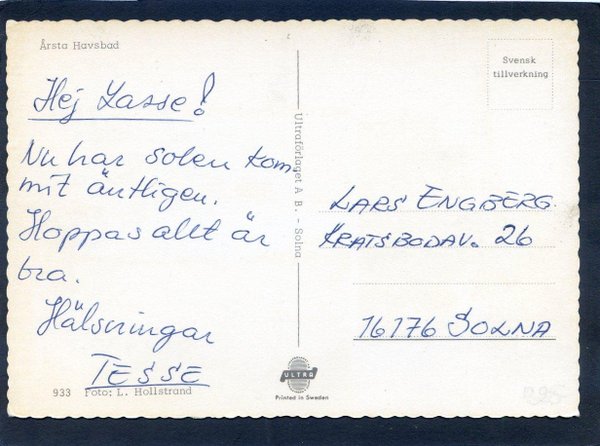 Årsta Havsbad
Hej Lasse!
Nu har solen kom
mit äntligen.
Hoppas allt är
bra.
Hälsningar
TESSE
933 Foto: L. Hollstrand
Ultraförlaget A B. - Solna
ULTRA
Printed in Sweden
Svensk
tillverkning
LARS ENGBERG
KRATSBODAV. 26
16176 SOLNA